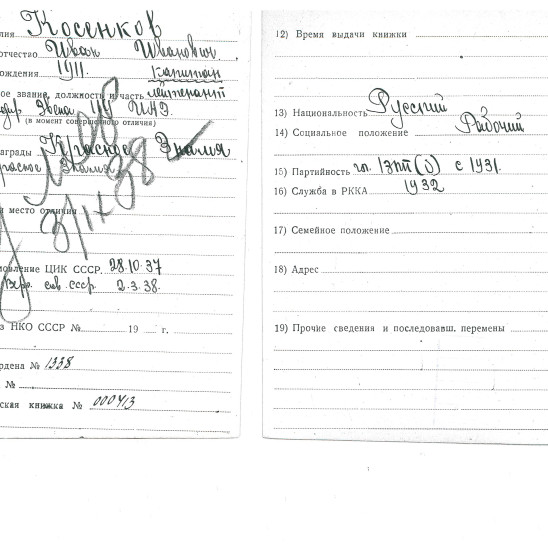 лия Косенков
отчество Иван Иванович
рождения 1911. капитан
ое звание, должность и часть лейтенант
звена ИАЭ.
(в момент совершенного отличия)
награды Красное Знамя
расное Знамя
и место отличия
3/IX 38
новление ЦИК СССР. 28.10.37
Верх. сов. ссср 2.3.38.
з НКО СССР № 19 г.
ордена № 1338
№
ская книжка № 000413
12) Время выдачи книжки
13) Национальность Русский
14) Социальное положение Рабочий
15) Партийность чл. ВКП(б) с 1931.
16) Служба в РККА 1932
17) Семейное положение
18) Адрес
19) Прочие сведения и последовавш. перемены